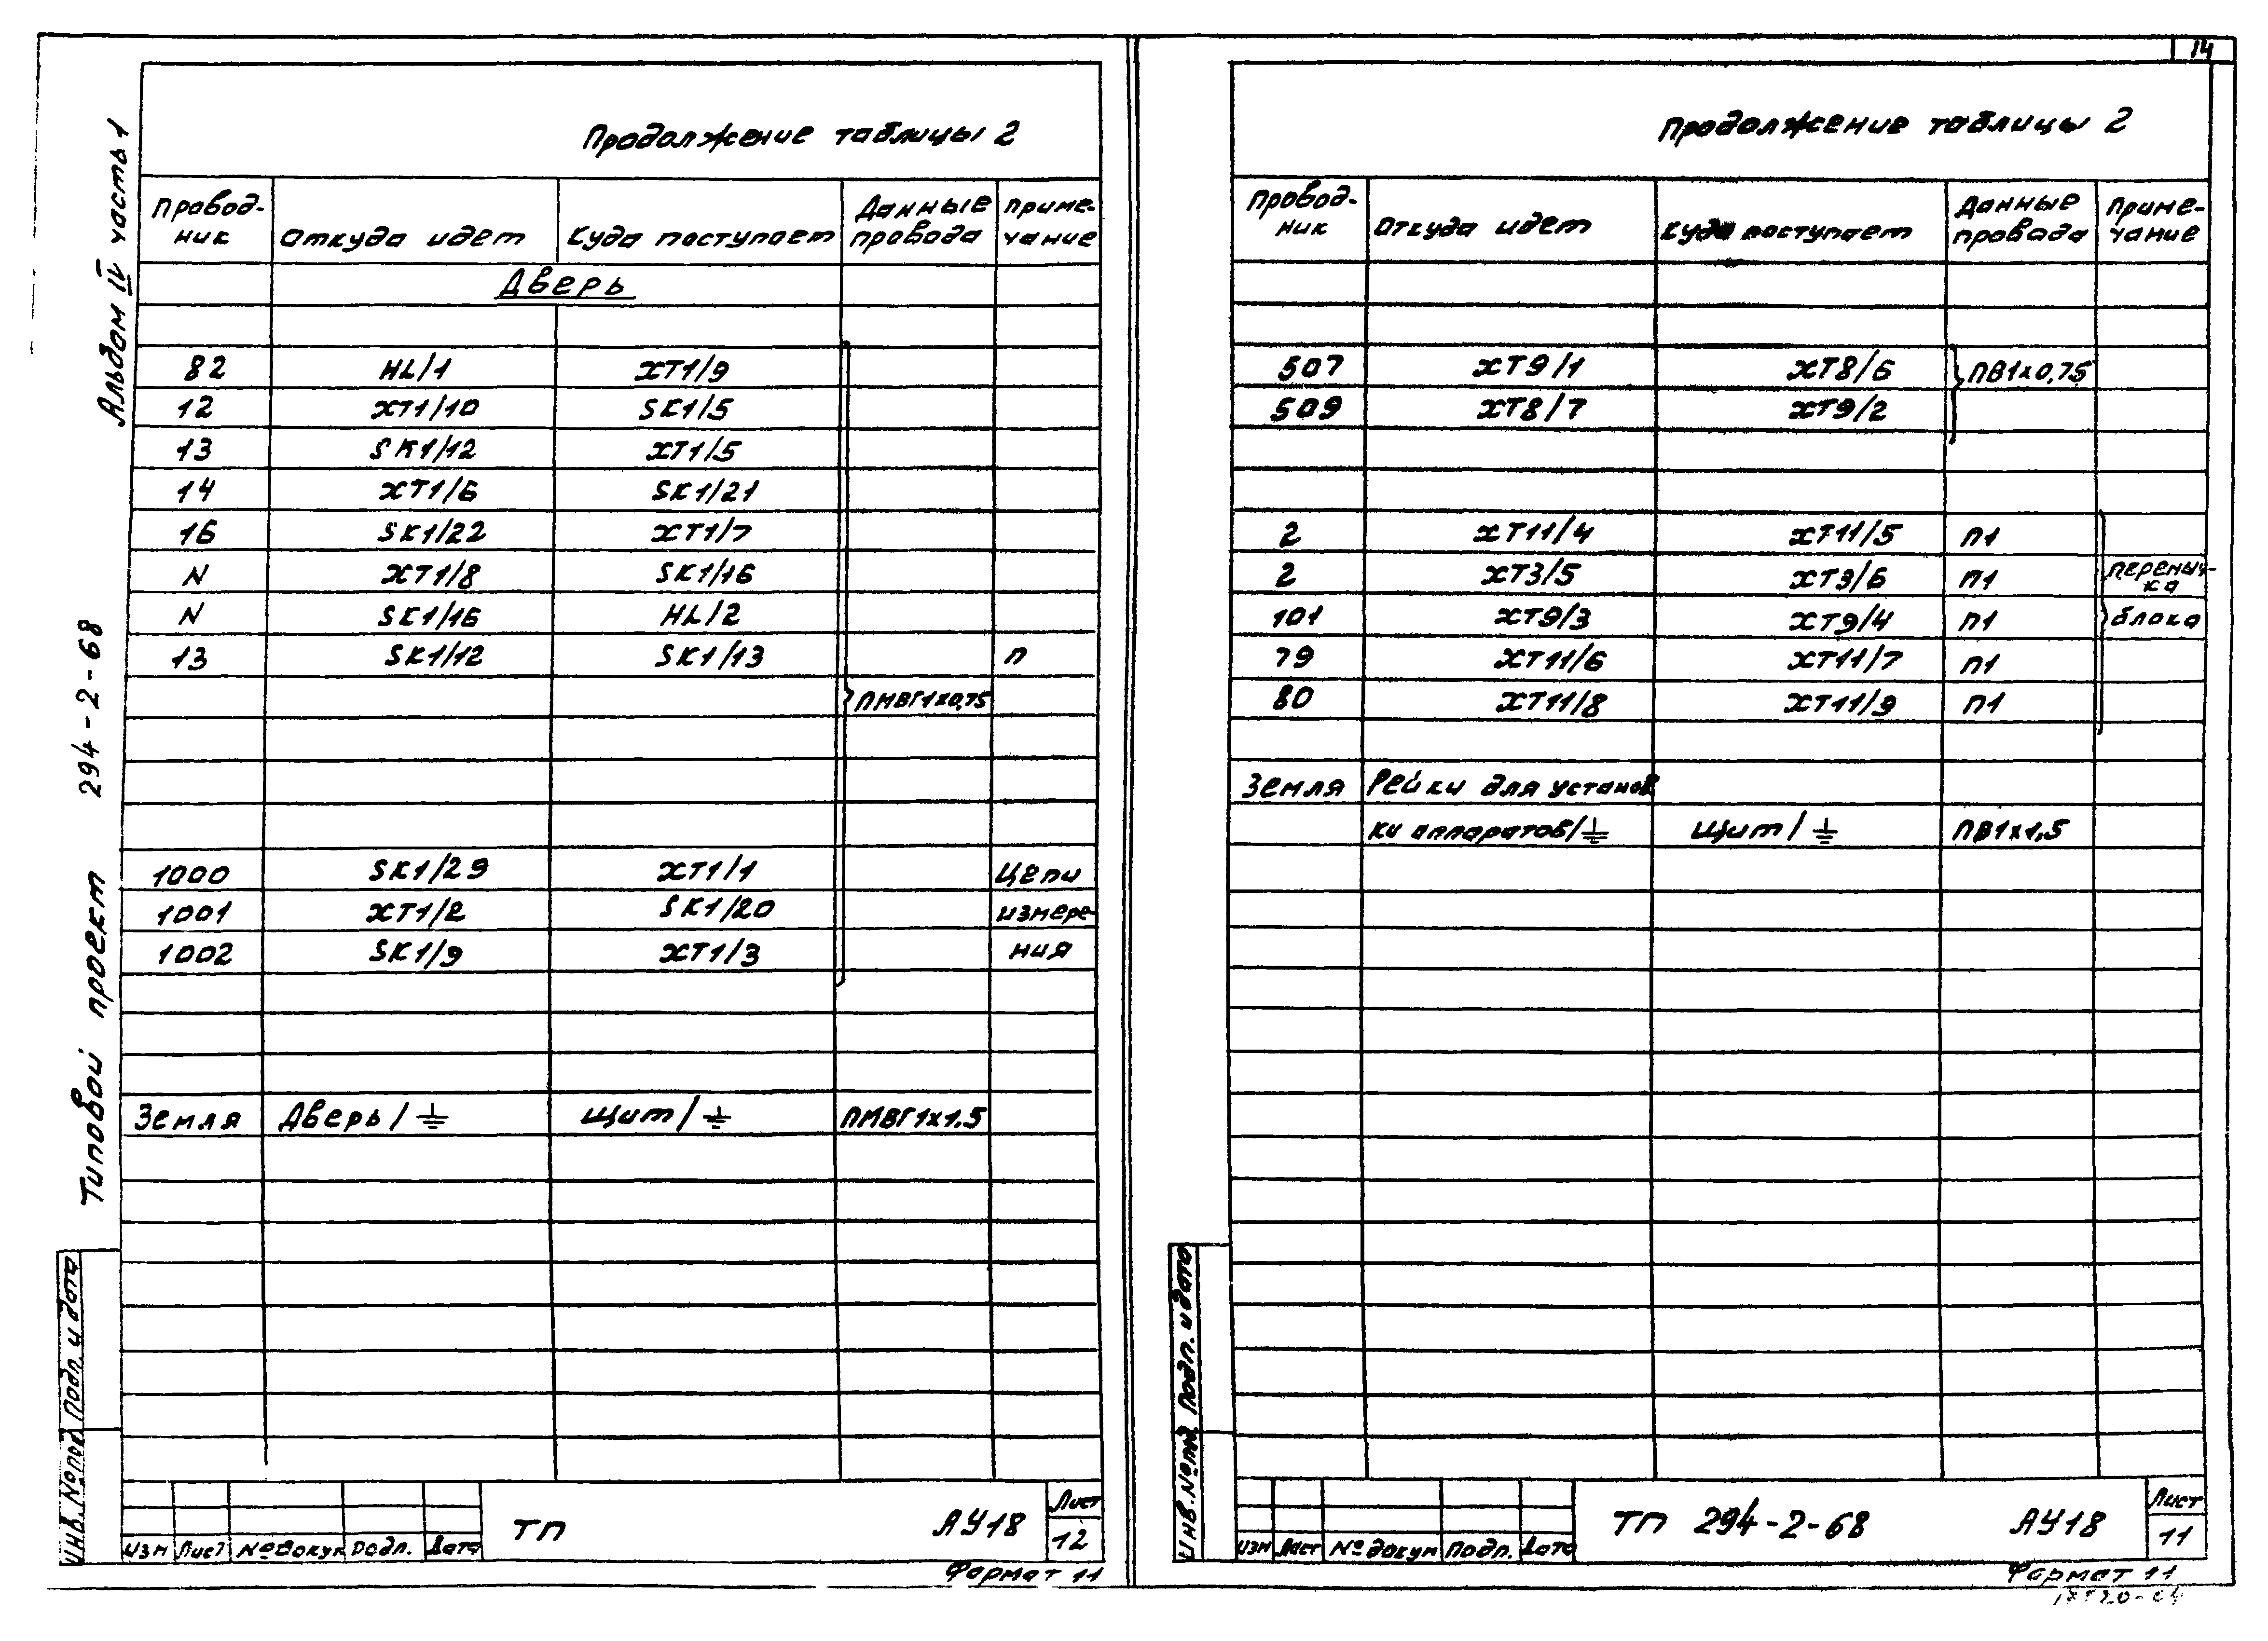 14
Альбом IV часть 1
Типовой проект 294-2-68
Продолжение таблицы 2
Провод-ник | Откуда идет | Куда поступает | Данные провода | Приме-чание
Дверь
82 HL/1 XT1/9
12 XT1/10 SK1/5
13 SK1/12 XT1/5
14 XT1/6 SK1/21
16 SK1/22 XT1/7
N XT1/8 SK1/16
N SK1/16 HL/2
13 SK1/12 SK1/13 п
ПМВГ1х0,75
1000 SK1/29 XT1/1 Цепи
1001 XT1/2 SK1/20 измере-
1002 SK1/9 XT1/3 ния
Земля Дверь/⏚ Щит/⏚ ПМВГ1х1.5
Инв. № подл. Подп. и дата
Изм Лист № докум Подп. Дата
ТП АУ18
Лист
12
Формат 11
Продолжение таблицы 2
Провод-ник | Откуда идет | Куда поступает | Данные провода | Приме-чание
507 XT9/1 XT8/6 ПВ1х0,75
509 XT8/7 XT9/2
2 XT11/4 XT11/5 П1
2 XT3/5 XT3/6 П1 перемыч-ка
101 XT9/3 XT9/4 П1 блока
79 XT11/6 XT11/7 П1
80 XT11/8 XT11/9 П1
Земля Рейки для установ
ки аппаратов/⏚ Щит/⏚ ПВ1х1,5
Инв. № подл. Подп. и дата
Изм Лист № докум Подп. Дата
ТП 294-2-68 АУ18
Лист
11
Формат 11